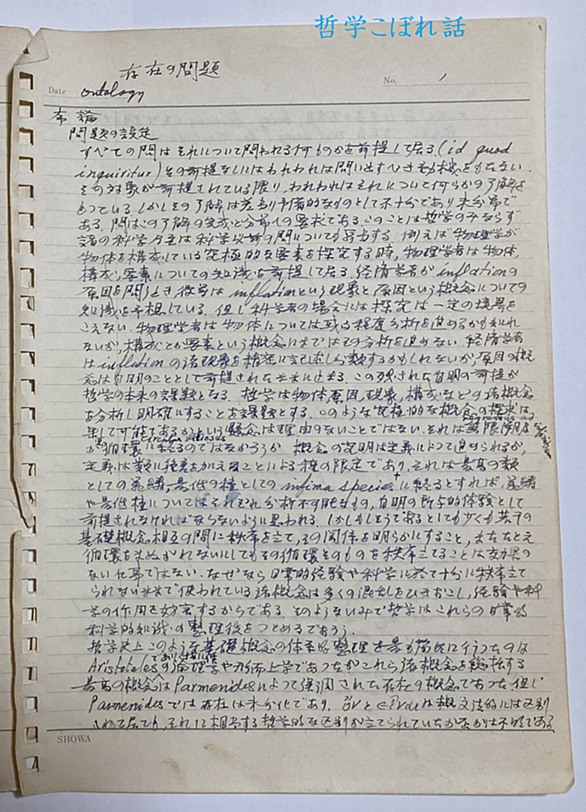 哲学こぼれ話
存在の問題
No. 1
Date ontology
序論
問題の設定
すべての問はそれについて問われる何ものかを前提して居る(id quod
inquiritur)その前提なしにはわれわれは問い出すべき動機をもたない。
その対象が前提されている限り、われわれはそれについて何らかの了解を
もっている。しかしその了解は差当り予備的なものとして不十分であり未分節で
ある。問はこの了解の完成と分節への要求である。このことは哲学のみならず
諸の科学乃至は科学以前の問についても妥当する。例えば物理学が
物体を構成している究極的な要素を探究する時、物理学者は物体、
構成、要素についての知識を前提して居る。経済学者がinflationの
原因を問うとき、彼等はinflationという現象と原因という概念についての
知識を予想している。但し科学者の場合には探究は一定の境界を
こえない。物理学者は物体については或る程度分析を進めるかもしれ
ないが、構成とか要素という概念にまではその分析を進めない。経済学者
はinflationの諸現象を精密に記述し分類するかもしれないが、原因の概
念は自明のこととして前提されたままに止まる。この残された自明の前提が
哲学の本来の課題となる。哲学は物体、原因、現象、構成、などの諸概念
を分析し明確にすることを課題とする。このような究極的な概念の探求は
果して可能であるかという疑念は理由のないことではない。それは無限遡及
か循環に終るのではなかろうか。概念の説明は定義によって進められるが、
定義は類に種差を加えることによる種の限定であり、それは最高の類
としての範疇、最低の種としてのinfima speciesに終るとすれば、範疇
や最低種についてはそれぞれ分析不可能なもの、自明の所与的体験として
前提されなければならないように思われる。しかしもしそうであるとしても少くも若干の
基礎概念相互の間に秩序を立て、その関係を明らかにすること、またたとえ
循環をまぬがれないにしてもその循環そのものを秩序立てることは効果の
ない仕事ではない。なぜなら日常的経験や科学に於て十分に秩序立て
られないままで使われている諸概念は多くの混乱をひきおこし、経験や科
学の作用を妨害するからである。そのようないみで哲学はこれらの日常的
科学的知識の整理役をつとめるであろう。
哲学史上このような基礎概念の体系的整理を最も偉大に行ったのは
Aristotelesの論理学や形而上学であったがこれら諸概念を総括する
最高の概念はParmenidesによって強調された存在の概念であった。但し
Parmenidesでは存在は未分化であり、ὄνとεἶναιは概文法的には区別
されて居ても、それに相当する哲学的な区別が立てられていたかどうかは不明である
SHOWA